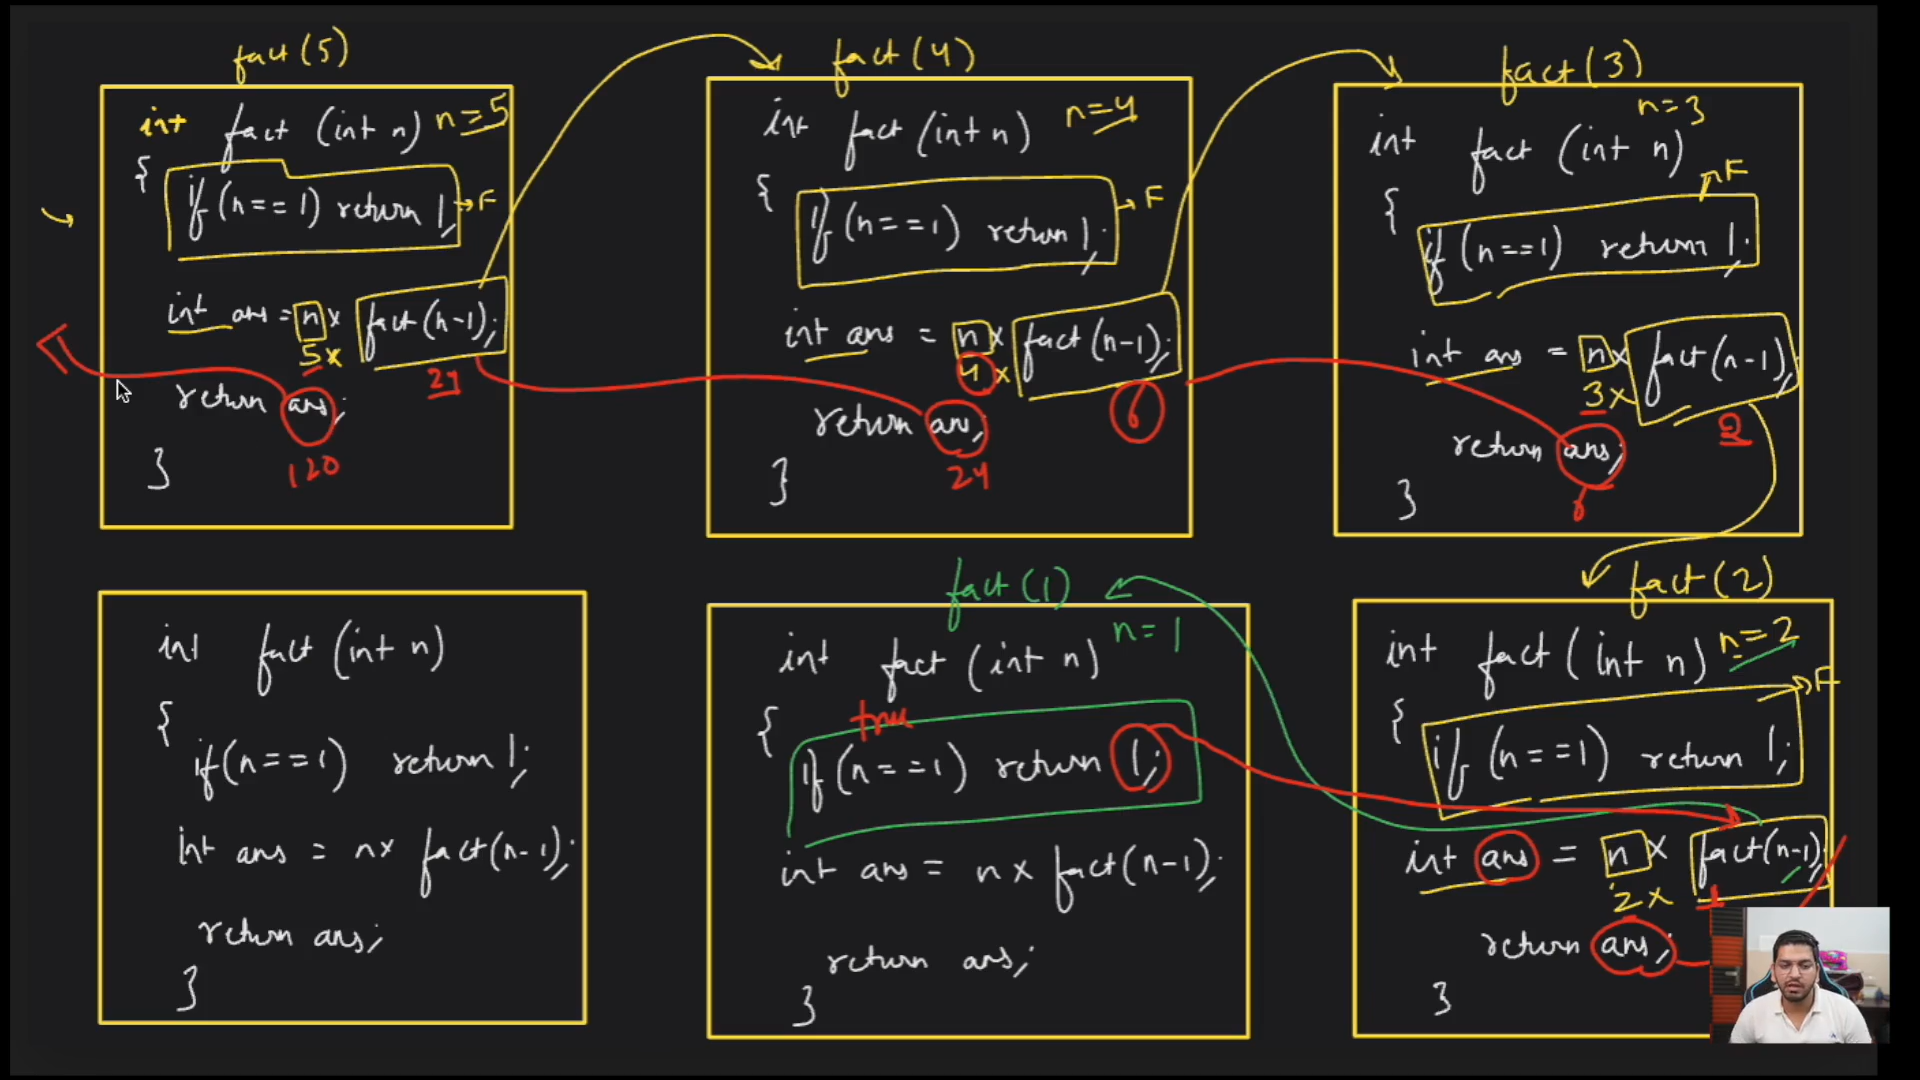 fact (5)
int fact (int n) n=5
{
if (n==1) return 1; → F
int ans = n x fact(n-1);
5x 24
return ans;
120
}
fact (4)
int fact (int n) n=4
{
if (n==1) return 1; → F
int ans = n x fact(n-1);
4 x 6
return ans;
24
}
fact (3)
n=3
int fact (int n)
F
{
if (n==1) return 1;
int ans = n x fact(n-1);
3x 2
return ans;
6
}
int fact (int n)
{
if(n==1) return 1;
int ans = nx fact(n-1);
return ans;
}
fact (1)
int fact (int n) n=1
{
true
if (n==1) return 1;
int ans = n x fact(n-1);
return ans;
}
fact (2)
int fact (int n) n=2
F
{
if (n==1) return 1;
int ans = n x fact(n-1);
2x 1
return ans;
}